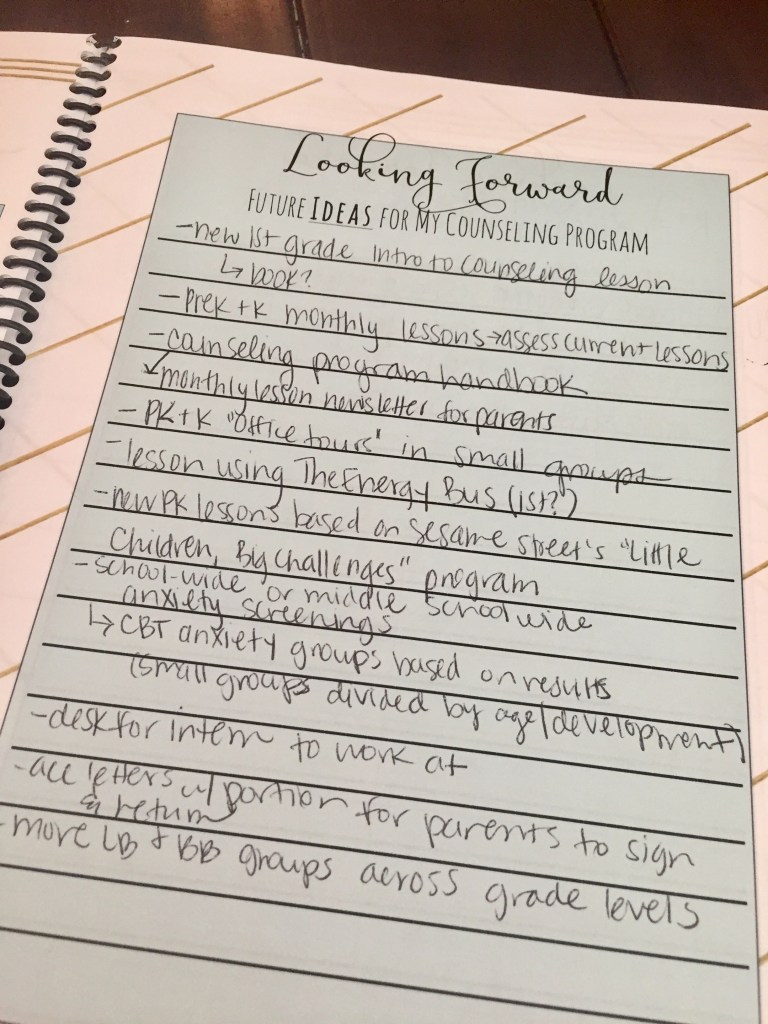 Looking Forward
FUTURE IDEAS FOR MY COUNSELING PROGRAM
-new 1st grade intro to counseling lesson
↳ book?
-PreK + K monthly lessons→assess current lessons
-counseling program handbook
✓monthly lesson newsletter for parents
- PK + K "office tours" in small groups
-lesson using The Energy Bus (1st?)
-new PK lessons based on Sesame Street's "Little
Children, Big Challenges" program
-school-wide or middle school wide
anxiety screenings
↳ CBT anxiety groups based on results
(small groups divided by age/development)
-desk for intern to work at
-all letters w/ portion for parents to sign
& return
-more LB + BB groups across grade levels